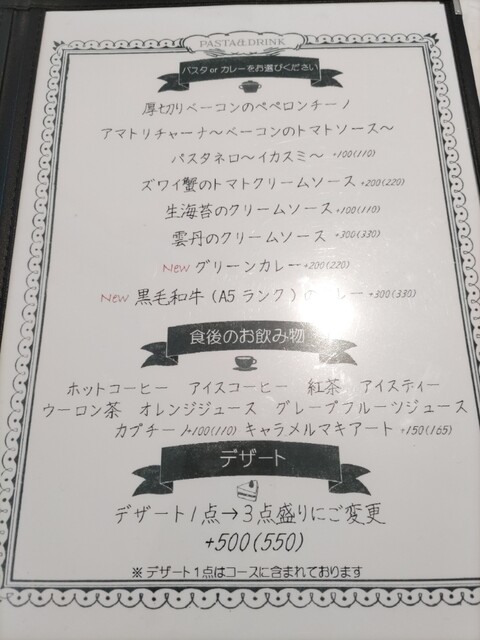 PASTA&DRINK
パスタ or カレーをお選びください
厚切りベーコンのペペロンチーノ
アマトリチャーナ～ベーコンのトマトソース～
パスタネロ～イカスミ～ +100(110)
ズワイ蟹のトマトクリームソース +200(220)
生海苔のクリームソース +100(110)
雲丹のクリームソース +300(330)
New グリーンカレー +200(220)
New 黒毛和牛 (A5 ランク) レー +300(330)
食後のお飲み物
ホットコーヒー アイスコーヒー 紅茶 アイスティー
ウーロン茶 オレンジジュース グレープフルーツジュース
カプチーノ+100(110) キャラメルマキアート +150(165)
デザート
デザート1点→3点盛りにご変更
+500(550)
※ デザート1点はコースに含まれております